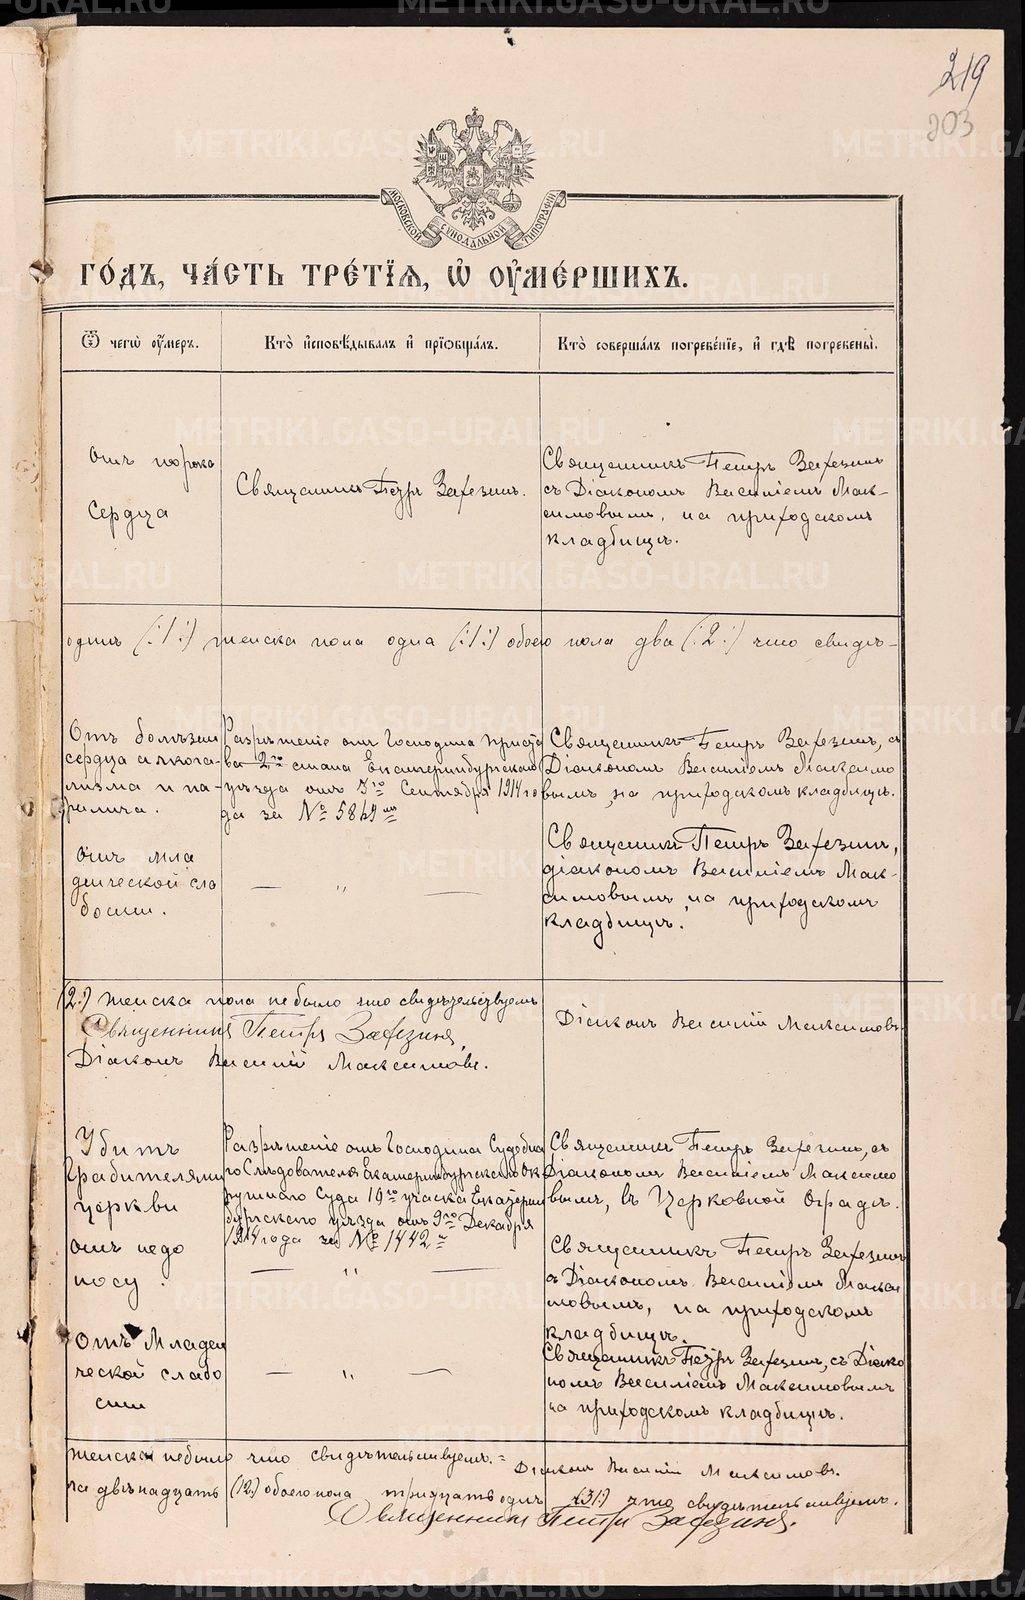 219
203
МОСКОВСКОЙ СѴНОДАЛЬНОЙ ТИПОГРАФІИ
ГО́ДЪ, ЧА́СТЬ ТРЕ́ТЇѦ, Ѽ ОУ҆МЕ́РШИХЪ.
Ѿ чегѡ̀ оу҆́меръ.
Кто̀ и҆сповѣ́дывалъ и҆ прїѡбща́лъ.
Кто̀ соверша́лъ погребе́нїе, и҆ гдѣ̀ погребены̀.
Отъ порока
Сердца
Священникъ Петръ Зафезинъ.
Священникъ Петръ Зафезинъ
съ Діакономъ Василіемъ Мак-
симовымъ, на приходскомъ
кладбищѣ.
одинъ (:1:) женска пола одна (:1:) обоего пола два (:2:) что свидѣ-
Отъ болѣзни
сердца алкого-
лизма и па-
ралича.
Разрѣшеніе отъ Господина Приста
ва 2го стана Екатеринбургскаго
уѣзда отъ 3го Сентября 1914 го
да за №
Священникъ Петръ Зафезинъ, съ
Діакономъ Василіемъ Максимо
вымъ, на приходскомъ кладбищѣ.
Отъ мла
денческой сла
бости.
— " —
Священникъ Петръ Зафезинъ,
діакономъ Василіемъ Мак-
симовымъ, на приходскомъ
кладбищѣ.
(2:) женска пола не было что свидѣтельствуемъ
Священникъ Петръ Зафезинъ,
Діаконъ Василій Максимовъ.
Діаконъ Василій Максимовъ
Убитъ
Грабителями
церкви
Разрѣшеніе отъ Господина Судебна
го Слѣдователя Екатеринбургскаго Ок
ружнаго Суда 19го участка Екатерин
бургскаго уѣзда отъ 9го Декабря
1914 года за № 1442
Священникъ Петръ Зафезинъ, съ
Діакономъ Василіемъ Максимо
вымъ, въ Церковной Оградѣ.
отъ недо
носу.
— " —
Священникъ Петръ Зафезинъ
съ Діакономъ Василіемъ Макси
мовымъ, на приходскомъ
кладбищѣ.
Отъ Младен
ческой слабо
сти
— " —
Священникъ Петръ Зафезинъ, съ Діако
номъ Василіемъ Максимовымъ
на приходскомъ кладбищѣ.
женска не было что свидѣтельствуемъ. =
Діаконъ Василій Максимовъ.
ла двѣнадцать (12:) обоего пола тридцать одинъ (31:) что свидѣтельствуемъ.
Священникъ Петръ Зафезинъ.
METRIKI.GASO-URAL.RU